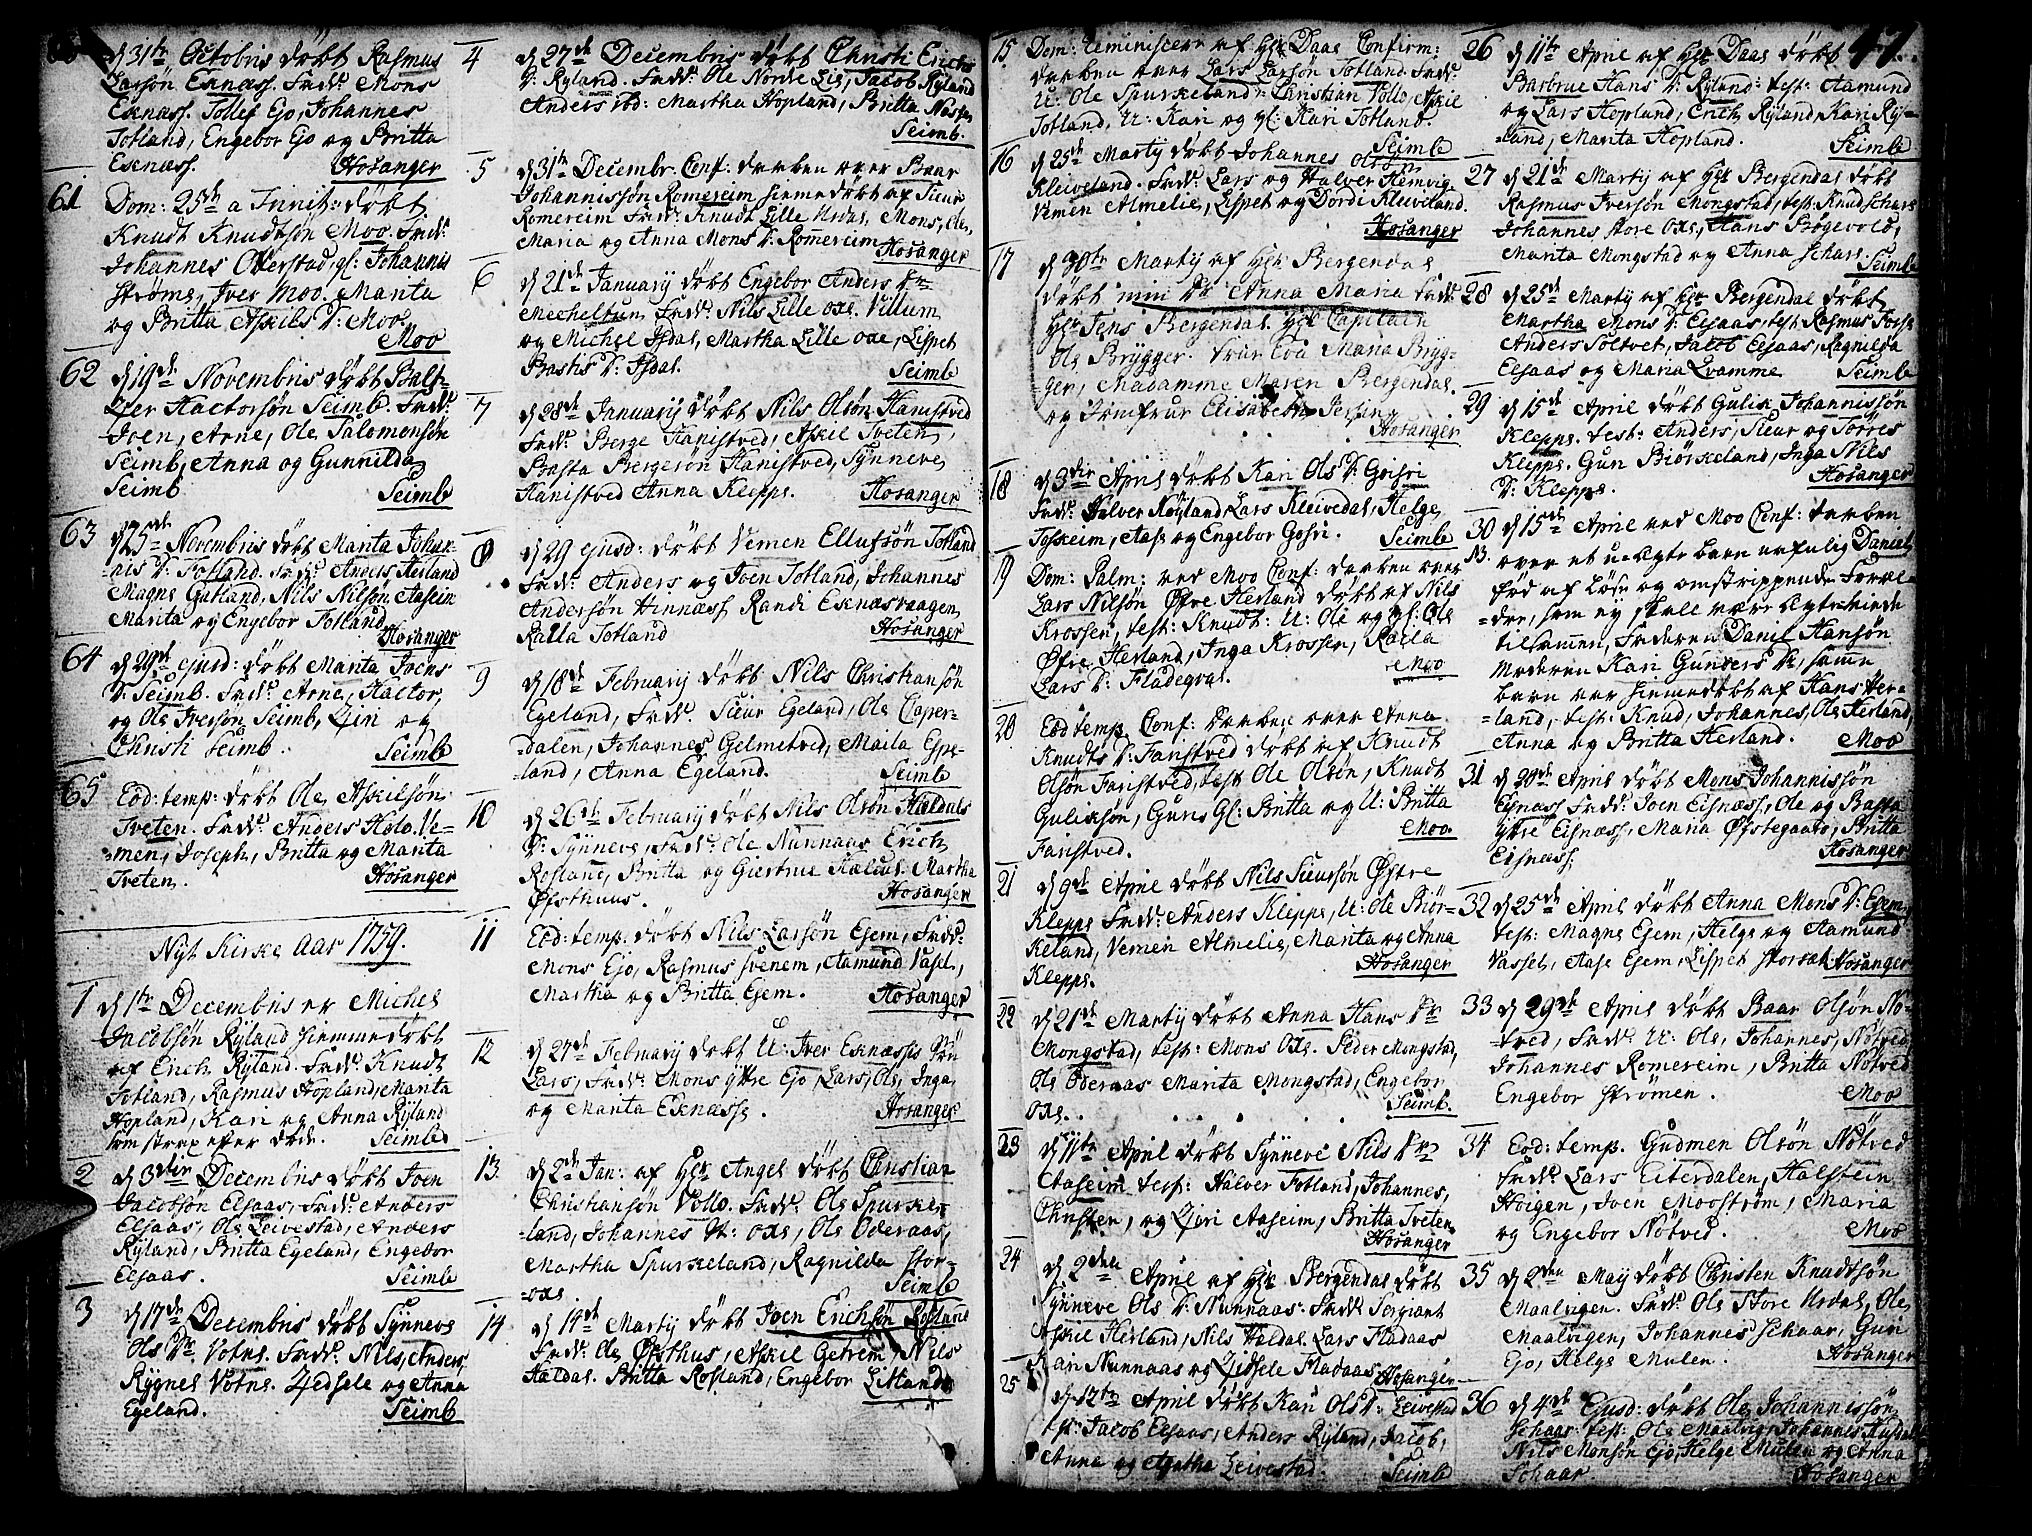 d 31te Octobris döbt Rasmus
Larsön Eknæss. Fadd. Mons
Eknæss. Tollef Ejo, Johannes
Totland, Engebor Ejo og Britta
Eknæss. Hosanger
61 Dom: 25te a Trinit: döbt
Knudt Knudtsön Moo. Fadd:
Johannes Okerstad, gl: Johannis
Ströms, Iver Moo. Marita
og Britta Askils D: Moo.
Moo
62 d 19de Novembris döbt Balt-
zer Hactorsön Seimb. Fadd:
Joen, Arne, Ole Salomonsön
Seimb, Anna og Gunnilda
Seimb Seimb
63 d 25de Novembris döbt Marita Johan-
nis D: Totland. Fadd: Anders Herland
Magne Gatland, Nils Nilsön Aaseim
Marita og Engebor Totland
Hosanger
64 d 29de ejusd: döbt Marita Joens
D: Seimb. Fadd: Arne, Hactor,
og Ole Iversön Seimb, og
Christi Seimb. Seimb
65 Eod: temp: döbt Ole Askilsön
Tveten. Fadd: Anders Holo. Ve-
men, Joseph, Britta og Marita
Tveten. Hosanger
Nyt Kirke Aar 1759.
1 d 1te Decembris er Michel
Jacobsön Ryland hiemmedöbt
af Erich Ryland. Fadd: Knudt
Totland, Rasmus Hopland, Marita
Hopland, Kari og Anna Ryland
som strax efter döde. Seimb
2 d 3die Decembris döbt Joen
Jacobsön Elsaas, Fadd: Anders
Elsaas, Ole Leivestad, Anders
Ryland, Britta Egeland, Engebor
Elsaas. Seimb
3 d 17de Decembris döbt Synneve
Ols Dr Votne. Fadd: Nils, Anders,
Rygnel Votne. Zidsele og Anna
Egeland. Seimb
4 d 27de Decembris döbt Christi Erichs
D: Ryland. Fadd: Ole Nordre Lie, Jacob Ryland
Anders ibd: Martha Hopland, Britta
Seimb.
5 d 31te Decembr. Conf: daaben over Baar
Johannissön Romereim hiemmedöbt af Siur
Romereim Fadd: Knudt Lille Urdal, Mons, Ole,
Maria og Anna Mons D: Romereim Hosanger
6 d 21de January döbt Engebor Anders Dr
Mecheltun, Fadd: Nils Lille oxe, Villum
og Michel Isdal, Martha Lille oxe, Lispet
Basti D: Isdal. Seimb
7 d 28de January döbt Nils Olsön Hanistved
Fadd: Berge Hanistved, Askil Tveten,
Basta Bergesön Hanistved, Synneve
Hanistved Anna Klepps. Hosanger
8 d 29 ejusd: döbt Vemen Ellufsön Totland
Fadd: Anders og Joen Totland, Johannes
Andersön Hinnæss Randi Eknæsvaagen,
Kalla Totland Hosanger
9 d 18de February döbt Nils Christiansön
Egeland, Fadd: Siur Egeland, Ole Caper-
dalen, Johannes Gelmetved, Maila Espe-
land, Anna Egeland. Seimb
10 d 26de February döbt Nils Olsön Haldals
D: Synneve, Fadd: Ole Nunnaas Erich
Rosland, Britta og Giertrue Haldal. Martha
Öfsthuus. Hosanger
11 Eod: temp: döbt Nils Larsön Ejem, Fadd:
Mons Ejo, Rasmus Svenem, Aamund Vasel,
Martha og Britta Ejem. Hosanger
12 d 27de February döbt U: Iver Eknæssis
Lars, Fadd: Mons yttre Ejo, Lars, Ole, Inga
og Marita Eknæss. Hosanger
13. d 2de Jan: af Hr. Angel döbt Christian
Christiansön Vollo. Fadd: Ole Spurke-
land, Johannes U: oxe, Ole Oderaas,
Martha Spurkeland, Ragnilda Stor-
oxe. Seimb
14. d 14de Marty döbt Joen Erichsön Rosland
Fadd: Ole Öfsthus, Askil Getrem, Nils
Haldal. Britta Rosland, Engebor Litland
15 Dom: Reminiscere af Hr. Daae Confirm:
daaben over Lars Larsön Totland. Fadd:
U: Ole Spurkeland, Christian Vollo, Askil
Totland, U: Kari og gl: Kari Totland.
Seimb
16 d 25de Marty döbt Johannes Olsön
Kleiveland. Fadd: Lars og Halver Hemvig
Vemen Almelie, Lispet og Dordi Kleiveland.
Hosanger
17 d 30te Marty af Hr. Bergendal
döbt min Dr Anna Maria Fadd:
Hr. Jens Bergendal. Hr. Capitain
Ole Brygger. Frue Eva Maria Bryg-
ger, Madamme Maren Bergendal.
og Jomfrue Elisabeth Jersin
Hosanger
18 d 3die April döbt Kari Ols D: Geisri
Fadd: Halver Röyland, Lars Kleivedal, Helge
Toskeim, Aase og Engebor Gosri. Seimb
19 Dom: Palm: ved Moo Conf: daaben over
Lars Nilsön Öfre Herland döbt af Nils
Krossen, test: Knudt: U: Ole og gl: Ole
Öfre Herland, Inga Krossen, Kalla
Lars D: Fladegral. Moo
20 Eod temp. Conf: daaben over Anna
Knudts D: Faristved döbt af Knudt
Olsön Faristved, test: Ole Olsön, Knudt
Guliksön, Guro Gl: Britta og U: Britta
Faristved. Moo.
21 d 9de April döbt Nils Siursön Östre
Klepps Fadd: Anders Klepps, U: Ole Biör-
keland, Vemen Almelie, Marita og Anna
Klepps. Hosanger
22 d 21de Marty döbt Anna Hans Dr
Mongstad, test: Mons Oxe. Peder Mongstad,
Ole Oderaas Marita Mongstad, Engebor
oxe. Seimb.
23 d 11te April döbt Synneve Nils Dr
Aaseim test: Halver Totland, Johannes,
Christen, og Aaseim, Britta Tveten
Hosanger
24 d 2den April af Hr. Bergendal döbt
Synneve Ols D: Nunnaas. Fadd: Sergiant
Askil Herland, Nils Haldal. Lars Fladaas
Kari Nunnaas og Zidsele Fladaas Hosanger
25 d 12te April döbt Kari Ols D: Leivestad
test: Jacob Elsaas, Anders Ryland, Jacob,
Anna og Agatha Leivestad. Seimb
47.
26 d 11te April af Hr. Daae döbt
Barbrue Hans D: Ryland: test: Aamund
og Lars Hopland, Erich Ryland, Kari Ry-
land, Marita Hopland. Seimb
27 d 21de Marty af Hr. Bergendal döbt
Rasmus Iversön Mongstad, test: Knud Schare
Johannes store Oxe, Hans Bögevold,
Marita Mongstad og Anna Schare. Seimb
28 d 25de Marty af Hr. Bergendal döbt
Martha Mons D: Elsaas, test: Rasmus
Anders Soltvet, Jacob Elsaas, Ragnilda
Elsaas og Maria Qvamme Seimb
29 d 15de April döbt Gulik Johannissön
Klepps. test: Anders, Siur og Torres
Klepps. Gun Biörkeland, Inga Nils
D: Klepps. Hosanger
30 d 15de April ved Moo Conf: daaben
NB. over et u-ægte barn nafnlig Daniel,
föd af löse og omstrippende Foræl-
dre, som ey skall være ægteviede
tilsamen, Faderen Daniel Hansön
Moderen Kari Gunders Dr, samme
barn var hiemmedöbt af Hans Her-
land, test: Knud, Johannes, Ole Herland,
Anna og Britta Herland. Moo
31 d 20de April döbt Mons Johannissön
Eisnæss Fadd: Joen Eisnæss, Ole og Basta
yttre Eisnæss, Maria Öfstegaard, Britta
Eisnæss. Hosanger
32 d 25de April döbt Anna Mons D: Ejem,
test: Magne Ejem, Helge og Aamund
Vassel, Aase Ejem, Lispet Hosanger
33 d 29de April döbt Baar Olsön Nö-
tved, Fadd: U: Ole, Johannes, Nötved,
Johannes Romereim, Britta Nötved
Engebor Strömen. Moo
34 Eod: temp. Gudmen Olsön Nötved
Fadd: Lars Eiterdalen, Halstein
Hoigen, Joen Mooström, Maria
og Engebor Nötved. Moo
35 d 2den May döbt Christen Knudtsön
Maalvigen. Fadd: Ole Store Urdal, Ole
Maalvigen, Johannes Schaar, Guri
Ejo, Helge Mulen. Hosanger
36 d 4de Ejusd: döbt Ole Johannissön
Schaar. test: Ole Maalvig, Johannes
Nils Monsön Ejo, Helge Mulen og Anna
Schaar Hosanger